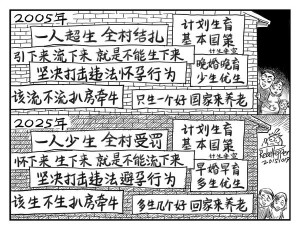 2005年
一人超生 全村结扎
引下来 流下来 就是不能生下来
坚决打击违法怀孕行为
该流不流扒房牵牛
计划生育
基本国策
晚婚晚育
少生优生
只生一个好 国家来养老
2025年
一人少生 全村受罚
怀下来 生下来 就是不能流下来
坚决打击违法避孕行为
该生不生扒房牵牛
计划生育
基本国策
早婚早育
多生优生
多生几个好 国家来养老